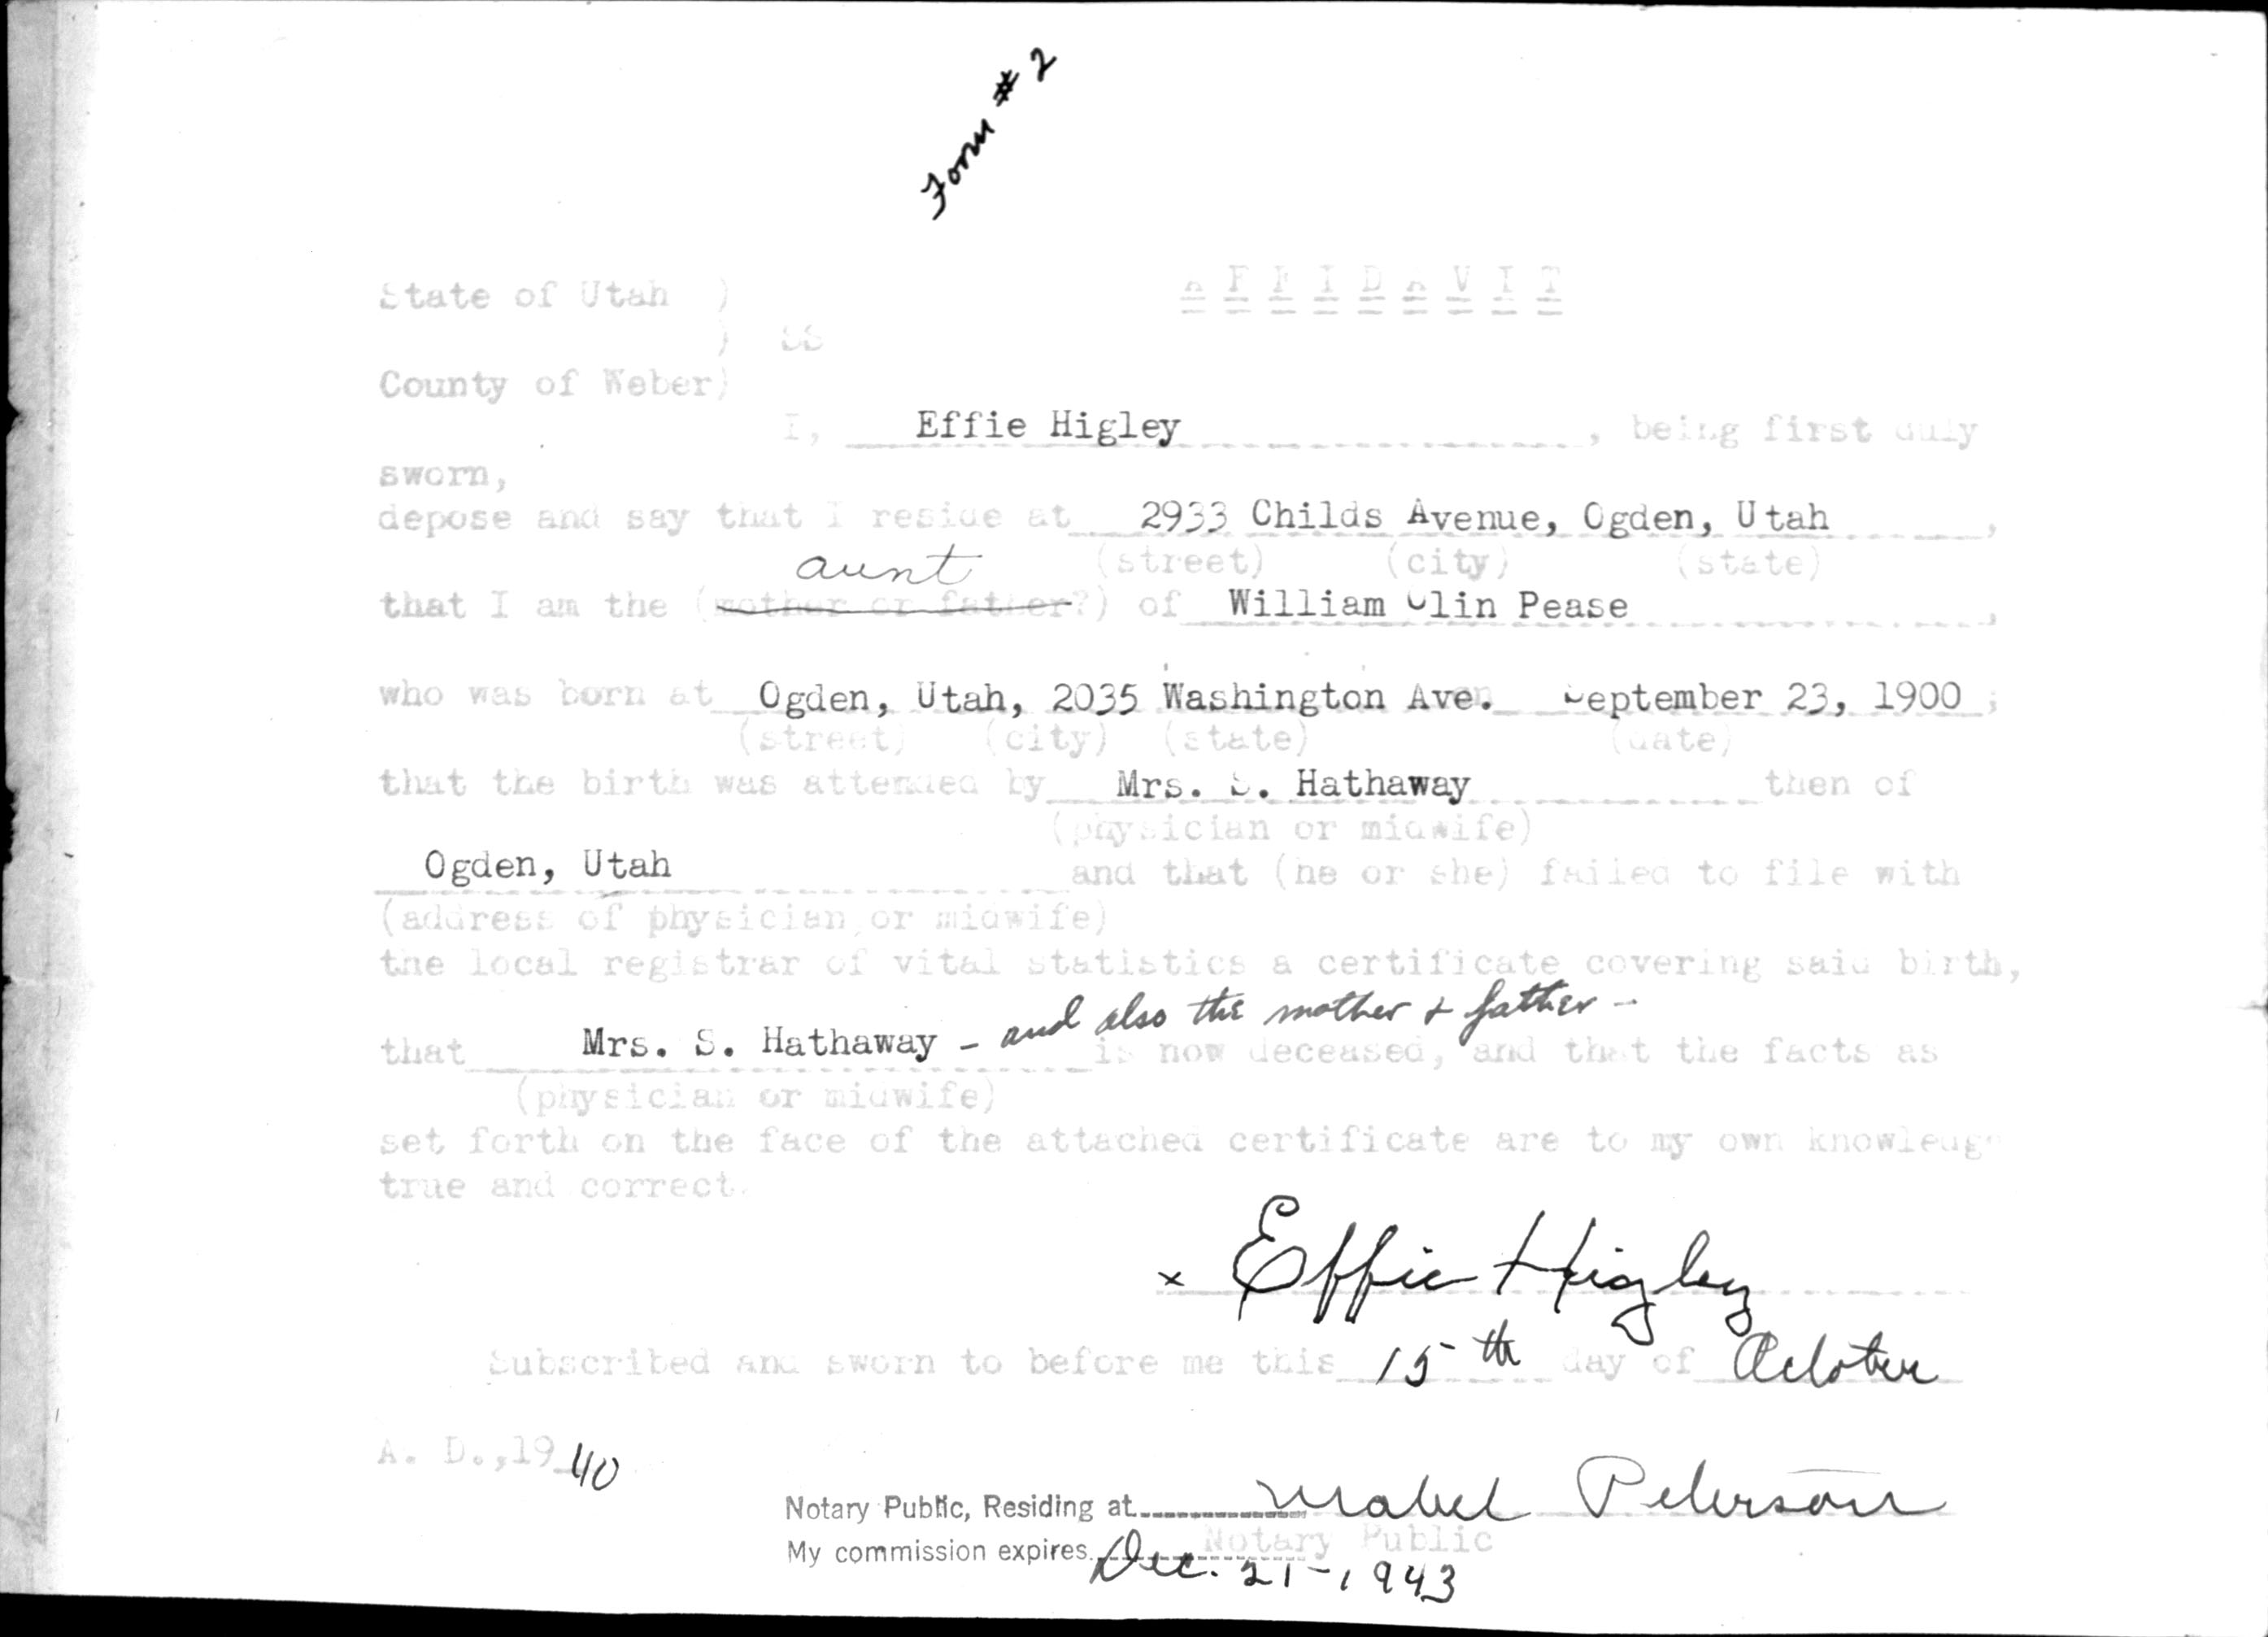 Form # 2
State of Utah ) AFFIDAVIT
) SS
County of Weber)
I, Effie Higley, being first duly
sworn,
depose and say that I reside at 2933 Childs Avenue, Ogden, Utah,
aunt (street) (city) (state)
that I am the (mother or father?) of William Olin Pease,
who was born at Ogden, Utah, 2035 Washington Ave. September 23, 1900;
(street) (city) (state) (date)
that the birth was attended by Mrs. S. Hathaway then of
(physician or midwife)
Ogden, Utah and that (he or she) failed to file with
(address of physician or midwife)
the local registrar of vital statistics a certificate covering said birth,
- and also the mother & father -
that Mrs. S. Hathaway is now deceased, and that the facts as
(physician or midwife)
set forth on the face of the attached certificate are to my own knowledge
true and correct.
x Effie Higley
Subscribed and sworn to before me this 15th day of October
A. D.,1940
Notary Public, Residing at Mabel Peterson
Notary Public
My commission expires Dec. 21-1943